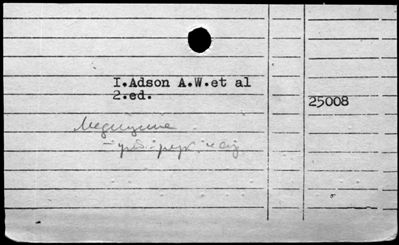 I.Adson A.W.et al
2.ed.
25008
Медицина